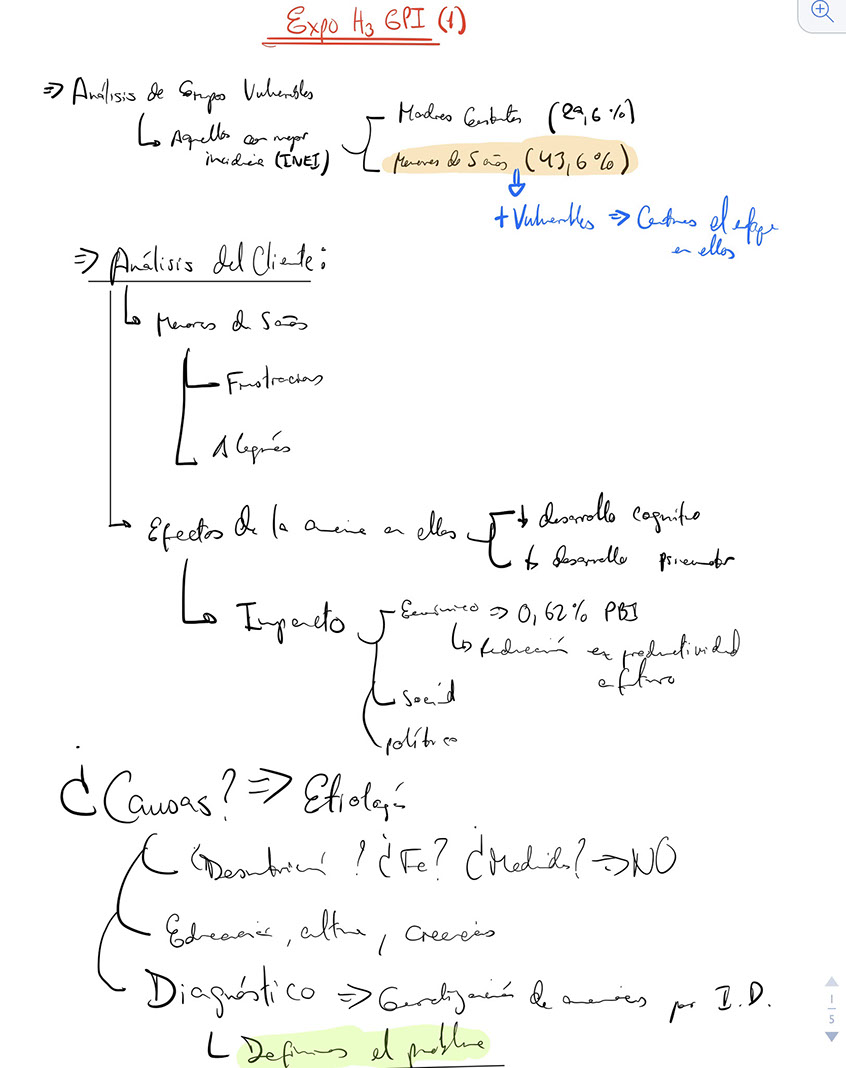 Expo H3 GPI (1)
⇒ Análisis de Grupos Vulnerables
Aquellos con mayor
incidencia (INEI)
Madres Gestantes (29,6%)
Menores de 5 años (43,6%)
+ Vulnerables ⇒ Centramos el enfoque
en ellos
⇒ Análisis del Cliente:
Menores de 5 años
Frustraciones
Alegrías
Efectos de la anemia en ellos
↓ desarrollo cognitivo
↓ desarrollo psicomotor
Impacto
Económico ⇒ 0,62% PBI
↳ Reducción en productividad
a futuro
Social
político
¿Causas? ⇒ Etiología
¿Desnutrición? ¿Fe? ¿Medido? ⇒ NO
Educación, cultura, creencias
Diagnóstico ⇒ Generalización de anemias por I.D.
Definimos el problema
1
5